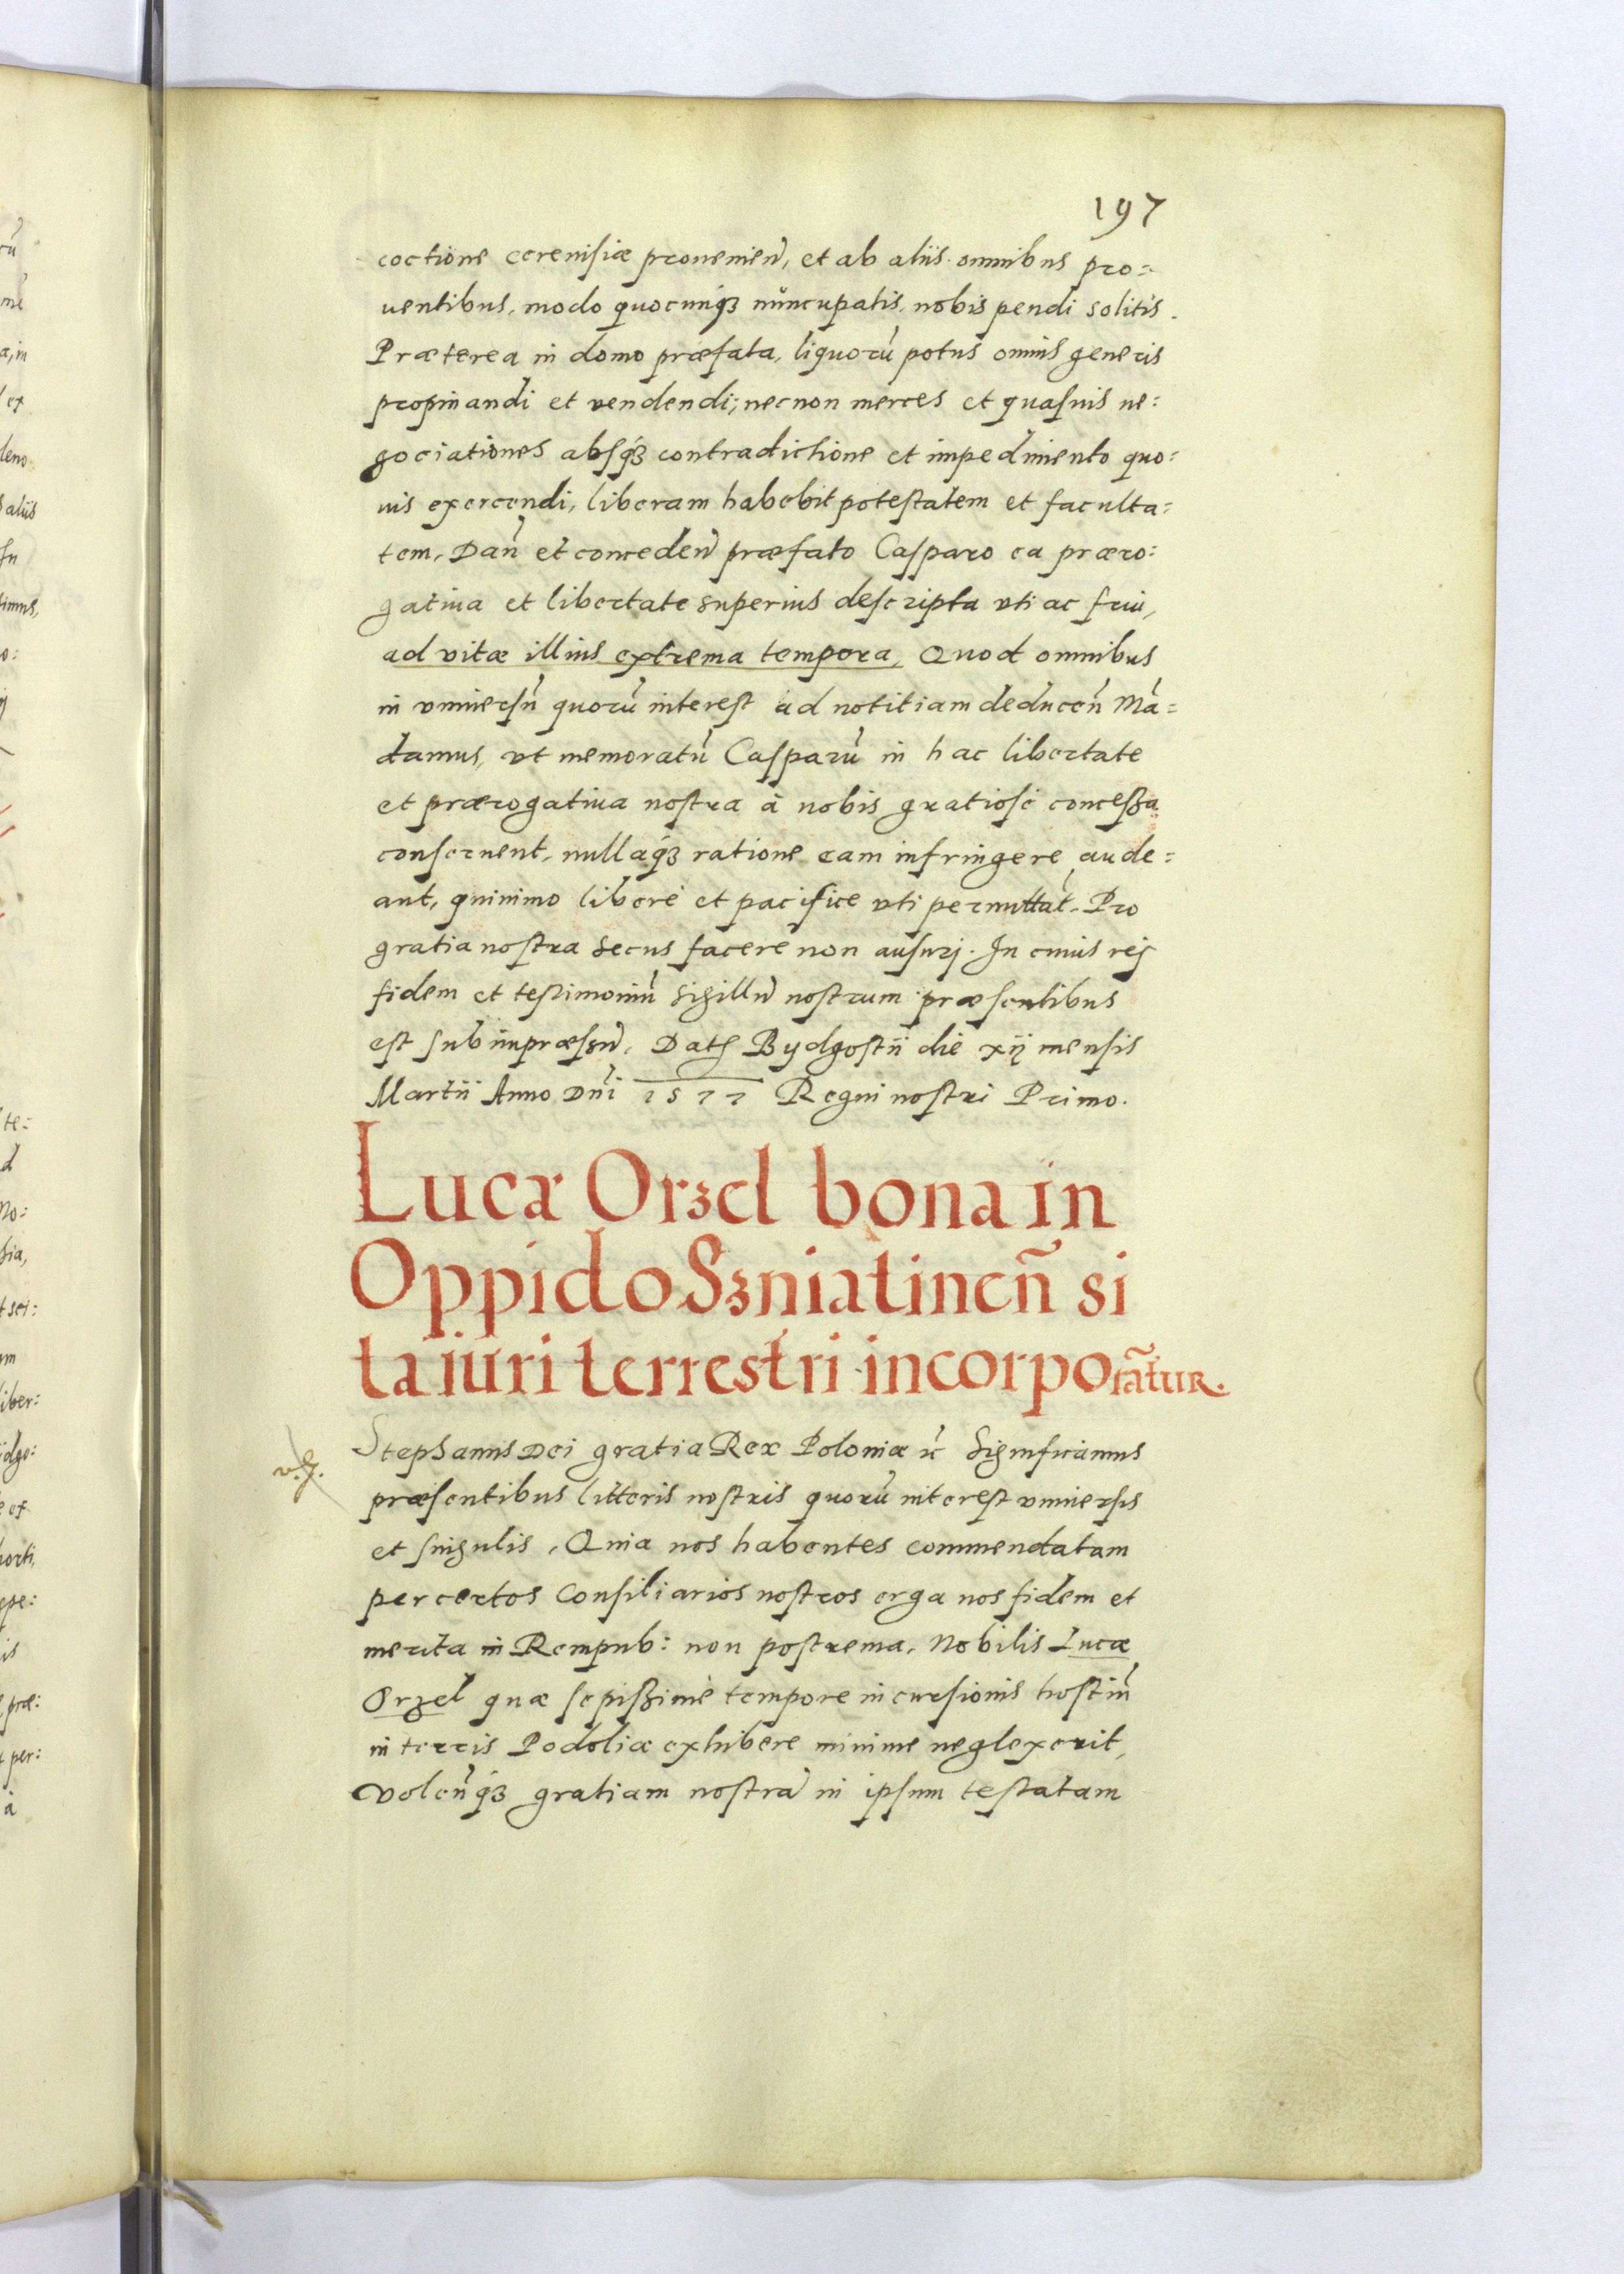 197
coctione cereuisiæ prouenien̄, et ab aliis omnibus pro:
uentibus, modo quocunq́ꝫ nuncupatis, nobis pendi solitis.
Præterea in domo præfata, liquorū potus omnis generis
propinandi et vendendi; necnon merces et quasuis ne:
gociationes absq́ꝫ contradictione et impedimento quo:
uis exercendi, liberam habebit potestatem et faculta:
tem, Dan̄ et conceden̄ præfato Casparo ea præro:
gatiua et libertate superius descripta vti ac frui,
ad vitæ illius extrema tempora, Quod omnibus
in vniuersū quorū interest ad notitiam deducen̄ Mā:
damus, vt memoratū Casparū in hac libertate
et prærogatiua nostra à nobis gratiosè conceßa
conseruent, nullaq́ꝫ ratione eam infringere aude:
ant, quinimo liberè et pacifice vti permittāt. Pro
gratia nostra secus facere non ausurj. In cuius rej
fidem et testimoniū sigillū nostrum præsentibus
est subimpræssū. Datꝭ Bydgostii die xij mensis
Martii Anno Dn̄i 1577 Regni nostri Primo.
Lucæ Orzel bona in
Oppido Szniatinen̄ si
ta iuri terrestri incorporātur.
Stephanus Dei gratia Rex Poloniæ ꝛc̄ Significamus
præsentibus litteris nostris quorū interest vniuersis
et singulis, Quia nos habentes commendatam
per certos Consiliarios nostros erga nos fidem et
merita in Rempub: non postrema, Nobilis Lucæ
Orzel quæ sepißimè tempore incursionis hostiū
in terris Podoliæ exhibere minime neglexerit,
Volen̄q́ꝫ gratiam nostrā in ipsum testatam